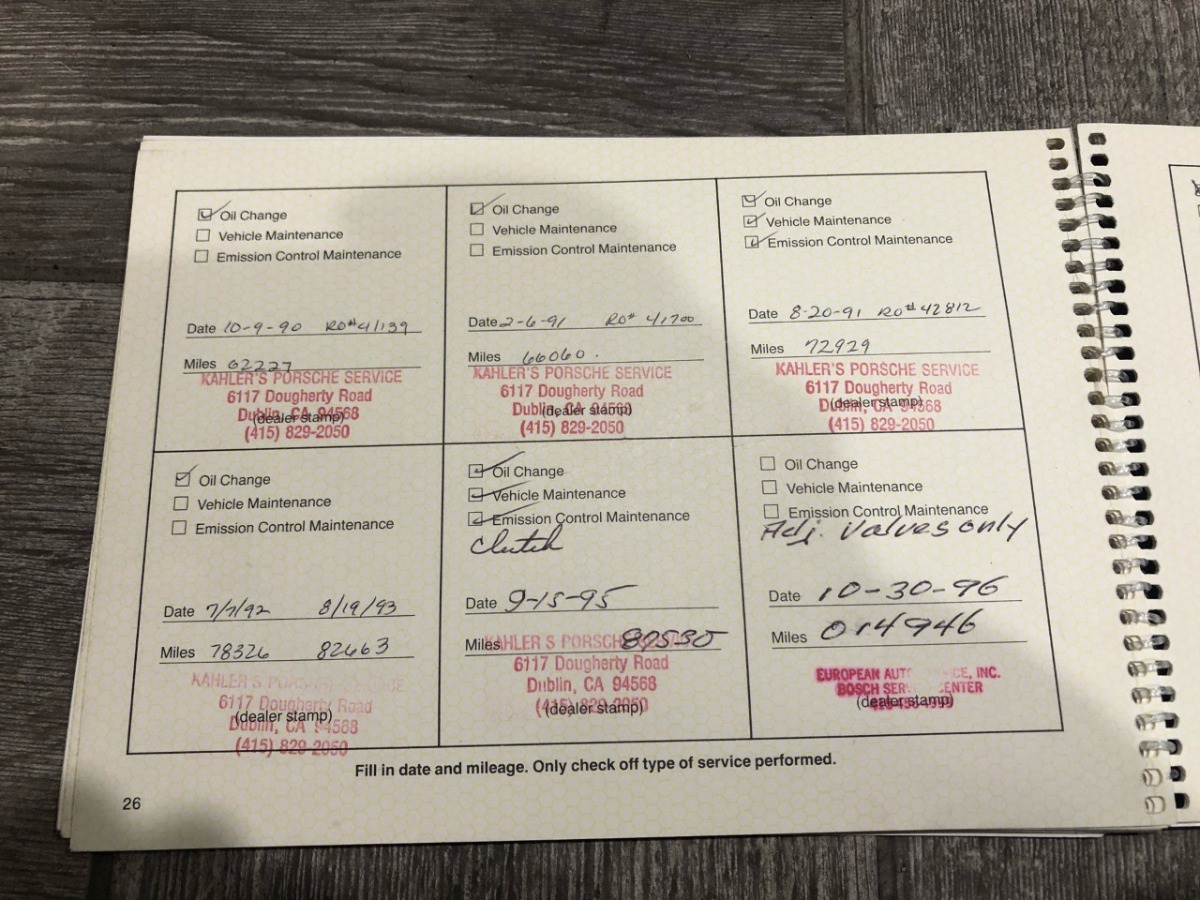 Oil Change
Vehicle Maintenance
Emission Control Maintenance
Date 10-9-90 RO#41139
Miles 62227
KAHLER'S PORSCHE SERVICE
6117 Dougherty Road
Dublin, CA 94568
(dealer stamp)
(415) 829-2050
Oil Change
Vehicle Maintenance
Emission Control Maintenance
Date 2-6-91 RO# 41700
Miles 66060.
KAHLER'S PORSCHE SERVICE
6117 Dougherty Road
Dublin, CA 94568
(dealer stamp)
(415) 829-2050
Oil Change
Vehicle Maintenance
Emission Control Maintenance
Date 8-20-91 RO# 42812
Miles 72929
KAHLER'S PORSCHE SERVICE
6117 Dougherty Road
Dublin, CA 94568
(dealer stamp)
(415) 829-2050
Oil Change
Vehicle Maintenance
Emission Control Maintenance
Date 7/7/92 8/19/93
Miles 78326 82663
KAHLER'S PORSCHE SERVICE
6117 Dougherty Road
(dealer stamp)
Dublin, CA 94568
(415) 829-2050
Oil Change
Vehicle Maintenance
Emission Control Maintenance
Clutch
Date 9-15-95
Miles
KAHLER'S PORSCHE
6117 Dougherty Road
Dublin, CA 94568
(415) 829-2050
(dealer stamp)
Oil Change
Vehicle Maintenance
Emission Control Maintenance
Adj. Valves only
Date 10-30-96
Miles 014946
EUROPEAN INC.
BOSCH
(dealer stamp)
Fill in date and mileage. Only check off type of service performed.
26